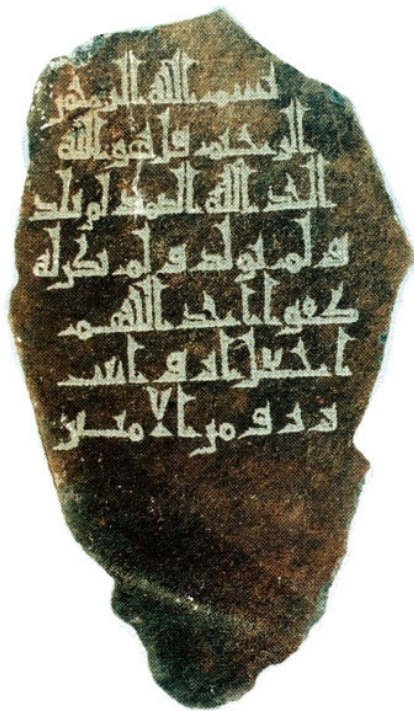 بسم الله الرحمن
الرحيم قل هو الله
احد الله الصمد لم يلد
و لم يولد و لم يكن له
كفوا احد اللهم
اجعل
من الامنين